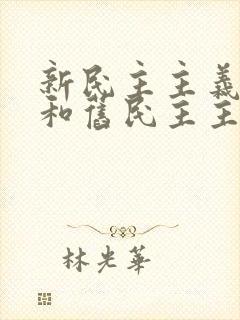 新民主主義
和舊民主主
林光華